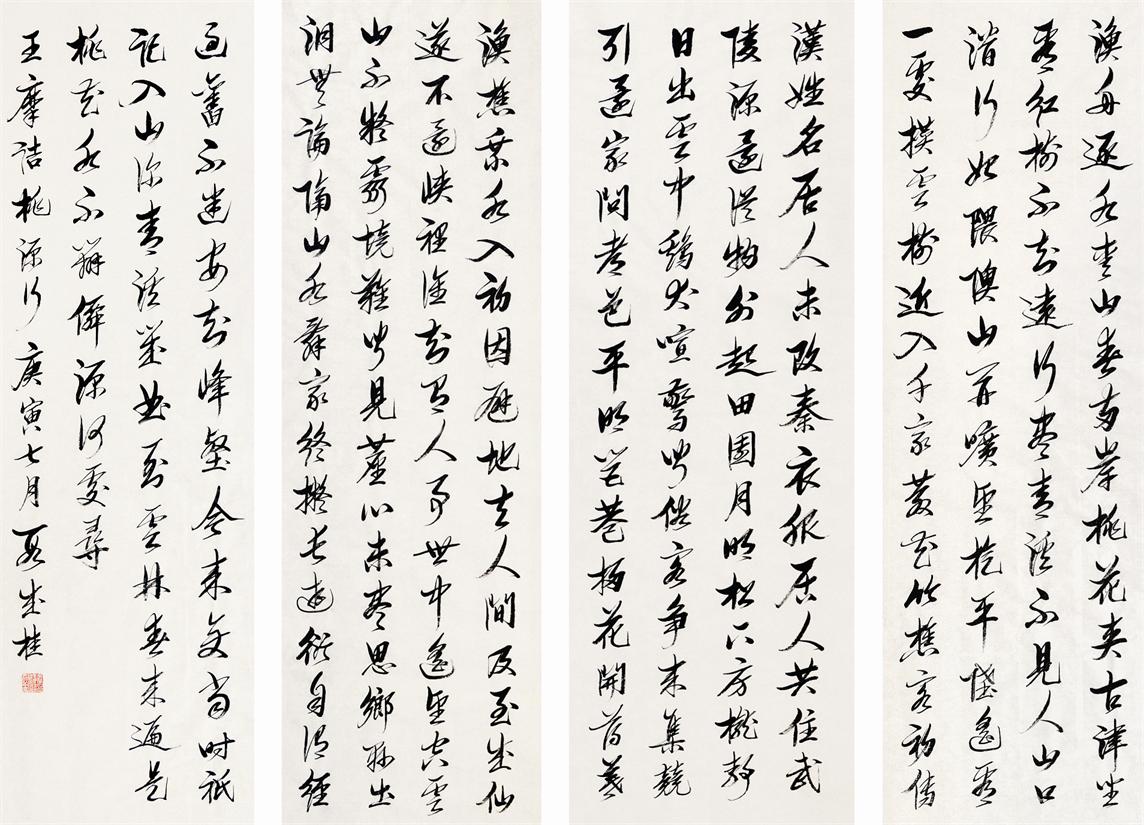 漁舟逐水愛山春兩岸桃花夾古津坐
看紅樹不知遠行盡青溪不見人山口
潛行始隈隩山開曠望旋平陸遙看
一處攢雲樹近入千家散花竹樵客初傳
漢姓名居人未改秦衣服居人共住武
陵源還從物外起田園月明松下房櫳靜
日出雲中鷄犬喧驚聞俗客爭來集競
引還家問都邑平明閭巷掃花開薄暮
漁樵乘水入初因避地去人間及至成仙
遂不還峽裡誰知有人事世中遙望空雲
山不疑靈境難聞見塵心未盡思鄉縣出
洞無論隔山水辭家終擬長遊衍自謂經
過舊不迷安知峰壑今來變當時祇
記入山深青溪幾曲到雲林春來遍是
桃花水不辨僊源何處尋
王摩詰桃源行 庚寅七月 夏成桂